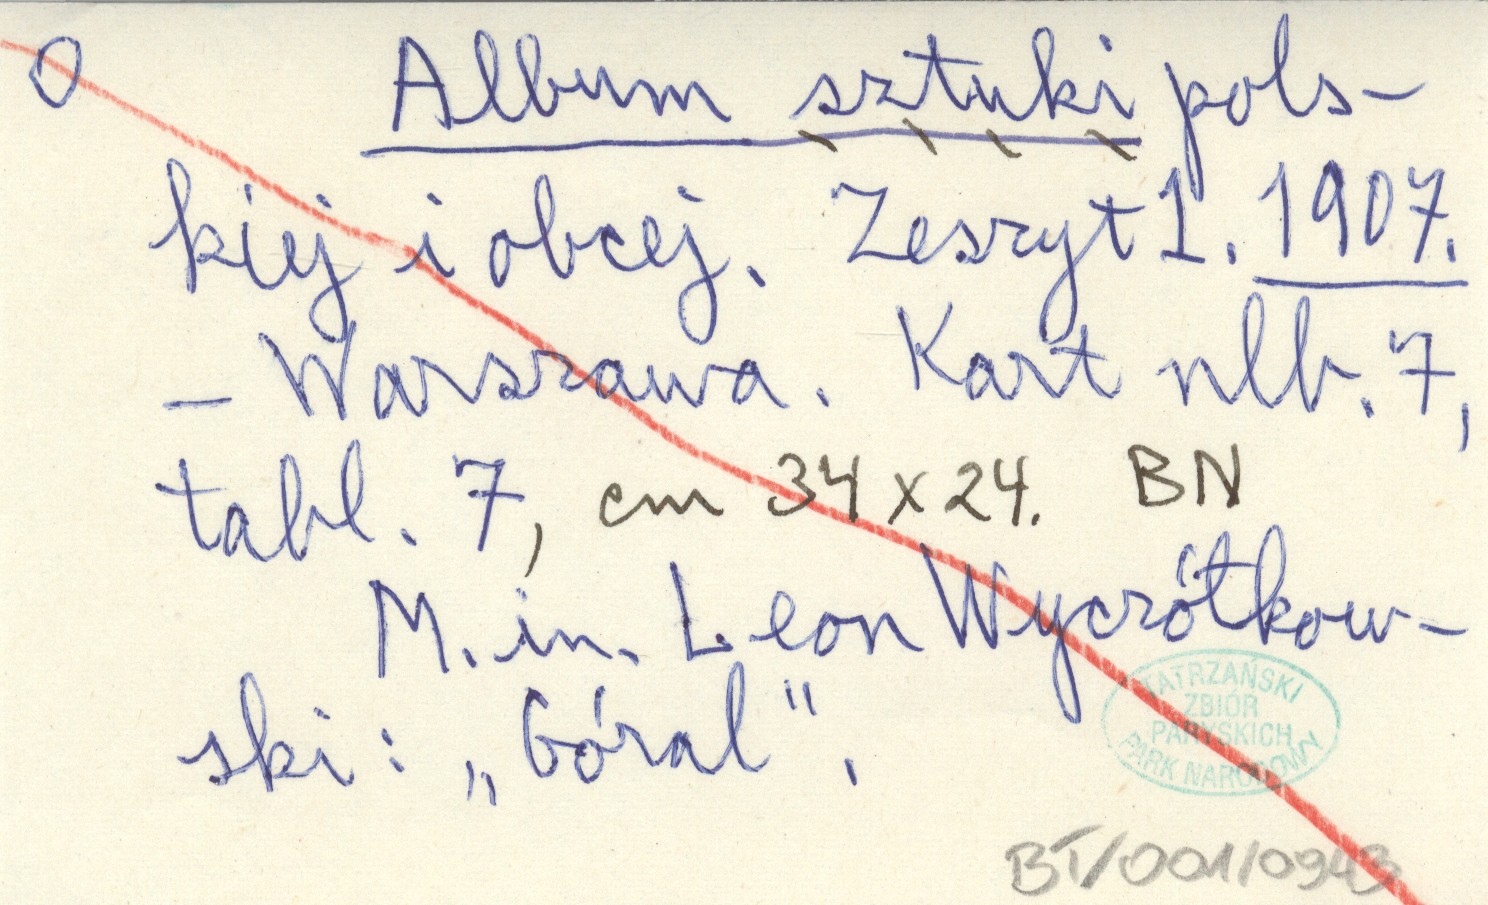 O Album sztuki pols-
kiej i obcej. Zeszyt 1. 1907.
- Warszawa. Kart nlb. 7,
tabl. 7, cm 34 x 24. BN
M. in. Leon Wyczółkow-
ski: „Góral".
TATRZAŃSKI
ZBIÓR
PARYSKICH
PARK NARODOWY
BT/001/0943